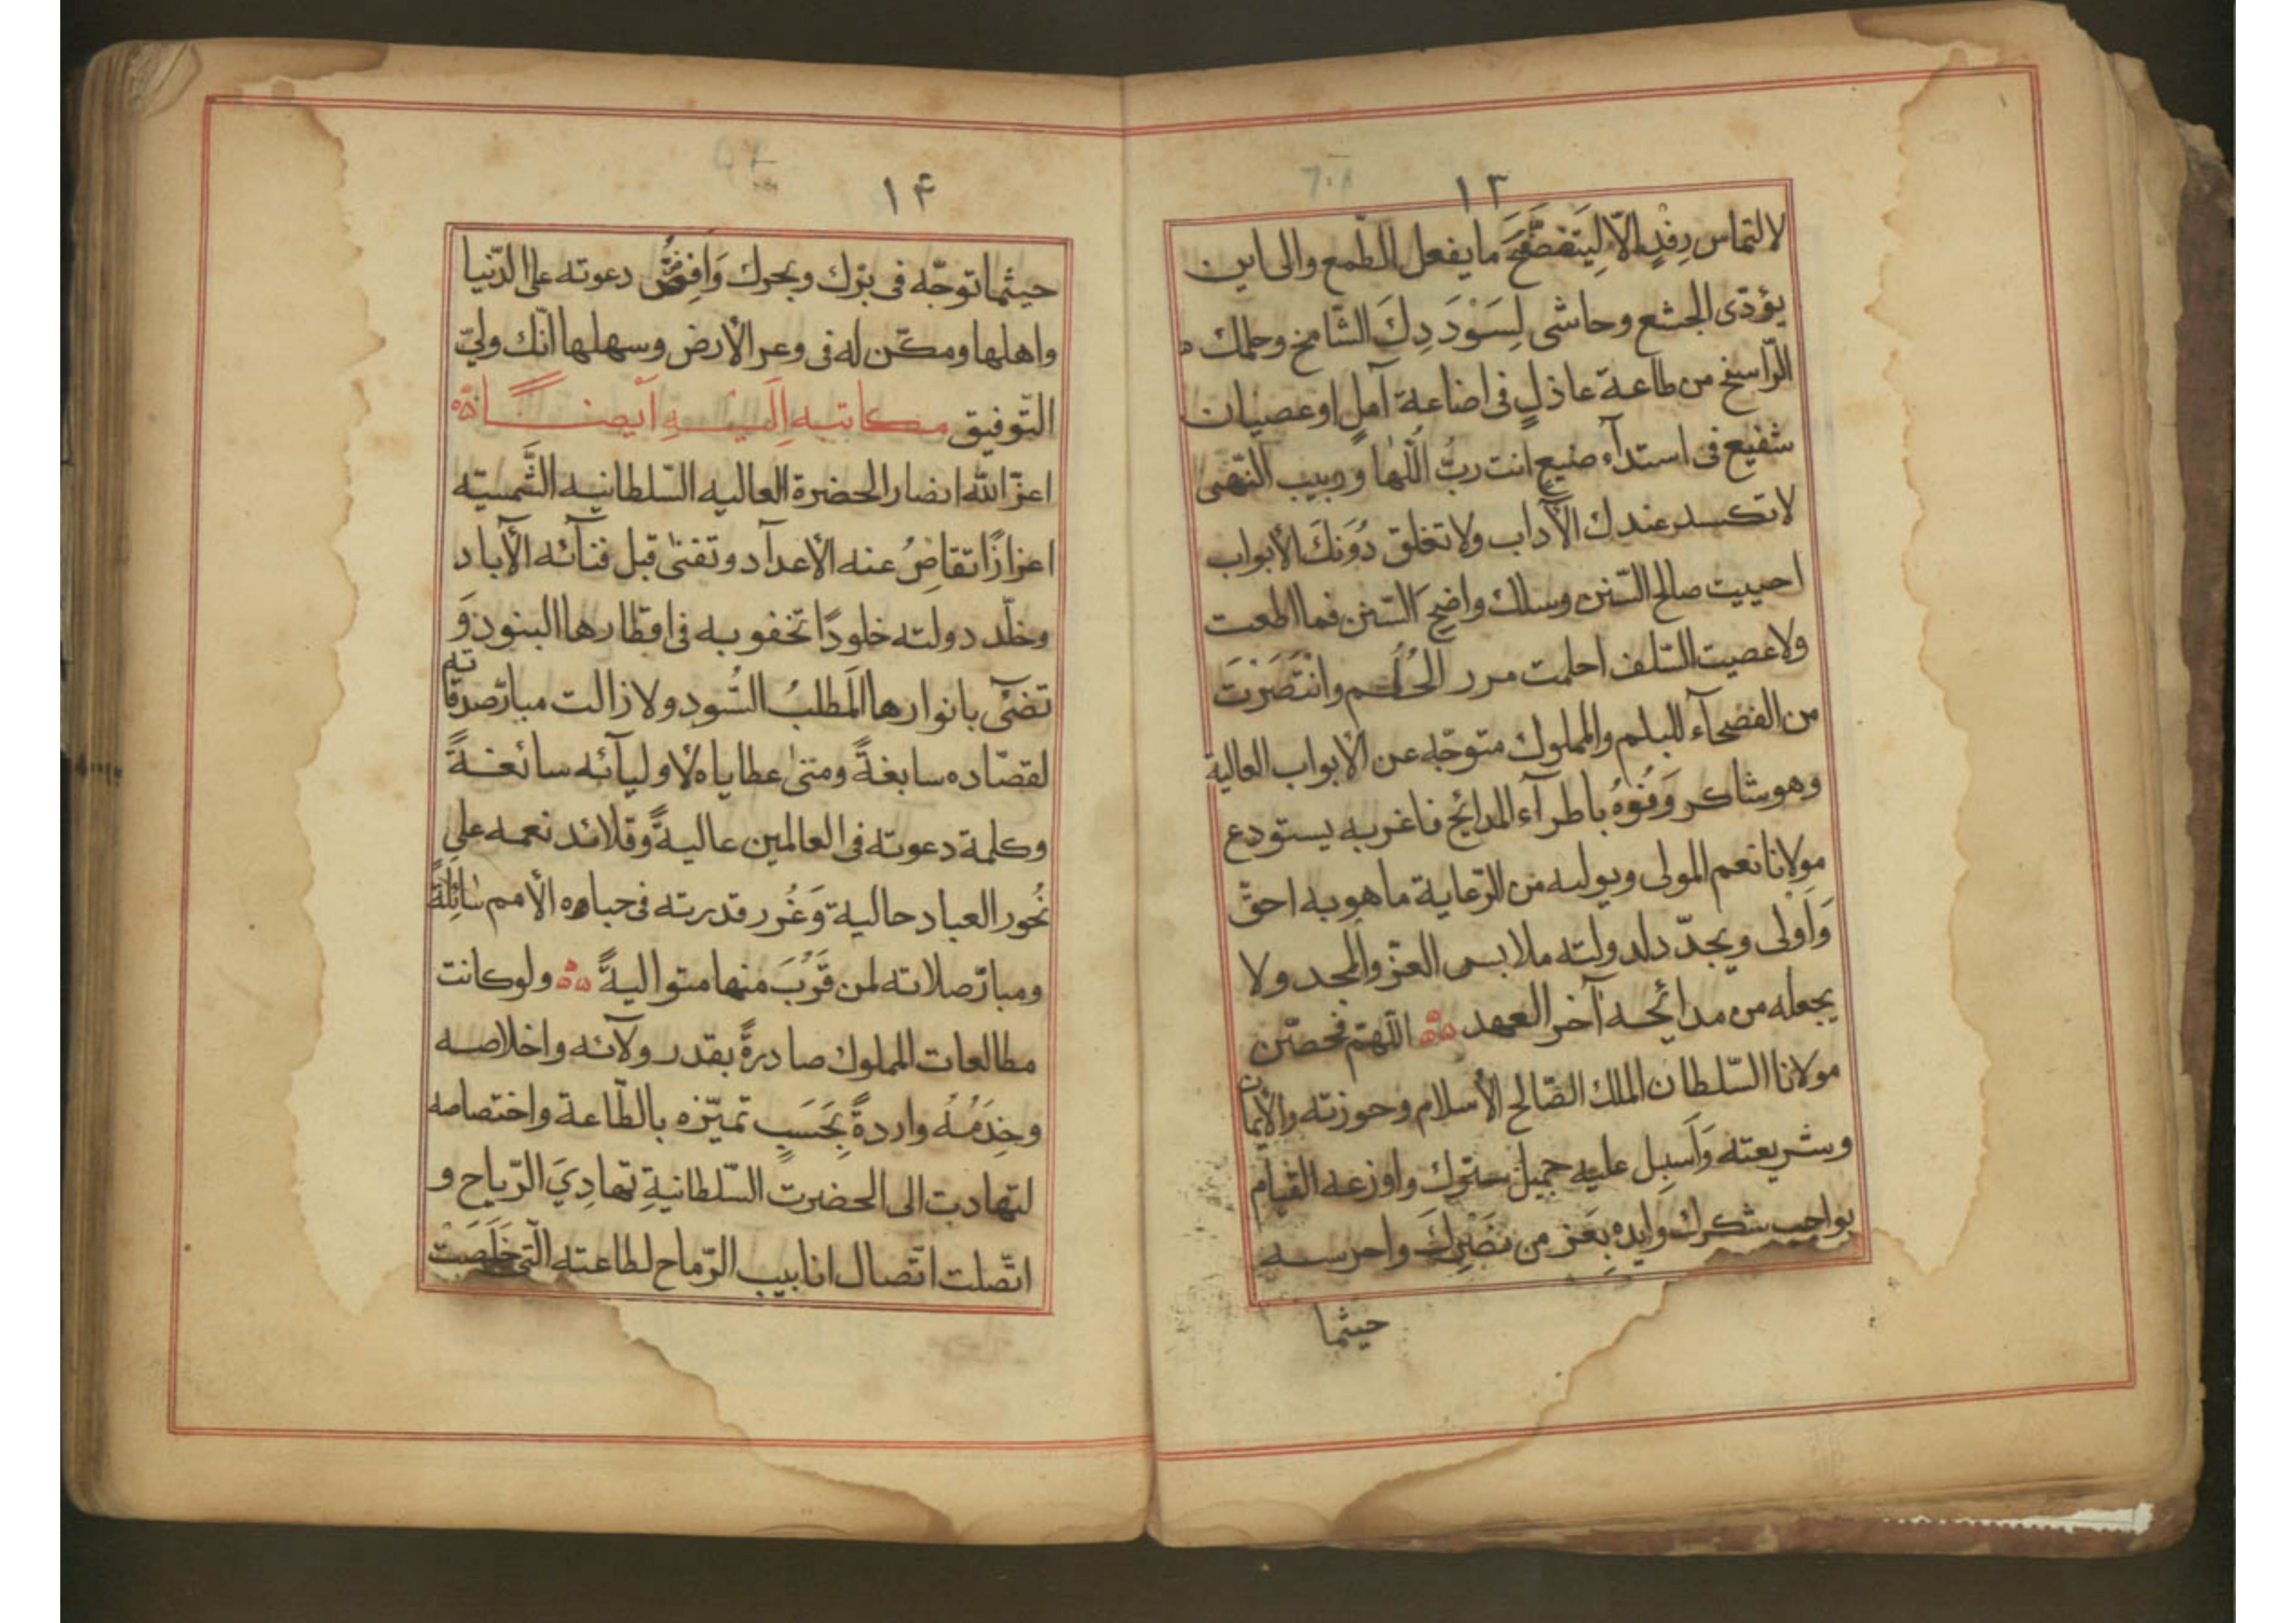 ١٣
لالتماس رِفْدٍ الّا لِيَتَفَصَّحَ ما يفعل الطّمع والى اين
يؤدّى الجشع وحاشى لِسَوْدَدِكَ الشّامخ وحلمك
الرّاسخ من طاعة عاذلٍ فى اضاعة آملٍ او عصيان
شفيع فى استدآء صنيع انت ربُّ اللُّها وحبيب النّهى
لا تكسد عندك الآداب ولا تغلق دُونَكَ الأبواب
احييت صالح السّنن وسلك واضح السّنن فما اطعت
ولا عصيت السّلف احلمت مرر الحُلُم وانْتَصَرْتَ
من الفصحآء للبلم والمملوك متوجّه عن الأبواب العالية
وهو شاكر وَفُوْهُ باطرآء المدائح فاغر به يستودع
مولانا نعم المولى ويوليه من الرّعاية ما هو به احقّ
وَاَوْلى ويجدّد لدولته ملابس العزّ والمجد ولا
يجعله من مدائحه آخر العهد اللّهمّ فحصّن
مولانا السّلطان الملك الصّالح الأسلام وحوزته والأيمان
وشريعته وَاَسبِل عليه جميل سترك واوزعه القيام
بواجب شكرك وايده بِعَز من نَصْرِكَ واحرسه
حيثما
١۴
حيثما توجّه فى برّك وبحرك وَافِضْ دعوته على الدّنيا
واهلها ومكّن له فى وعر الأرض وسهلها انّك وليّ
التّوفيق مكاتبه اِلَيْهِ اَيضًا
اعزّ الله انصار الحضرة العاليه السّلطانيه الشّمسيّه
اعزازًا تقاصَرُ عنه الأعدآد وتفنى قبل فنآئه الآباد
وخلّد دولته خلودًا تخفو به فى اقطارها البنود وَ
تضئ بانوارها المَطلبُ السُّود ولا زالت مبارّ صدقاته
لقصّاده سابغةً ومتنى عطاياه لأوليآئه سائغةً
وكلمة دعوته فى العالمين عاليةً وقلائد نعمه على
نُحور العباد حالية وَغُرر قدرته فى جباه الأمم سائِلَةً
ومبارّ صلاته لمن قَرُبَ منها متواليةً ولو كانت
مطالعات المملوك صادرةً بقدر ولآئه واخلاصه
وخِدَمُهُ واردةً بِحَسَبِ تميّزه بالطّاعة واختصاصه
لتهادت الى الحضرت السّلطانيةِ تهادِيَ الرّياح و
اتّصلت اتّصال انابيب الرّماح لطاعته الّتى خَلَصَتْ